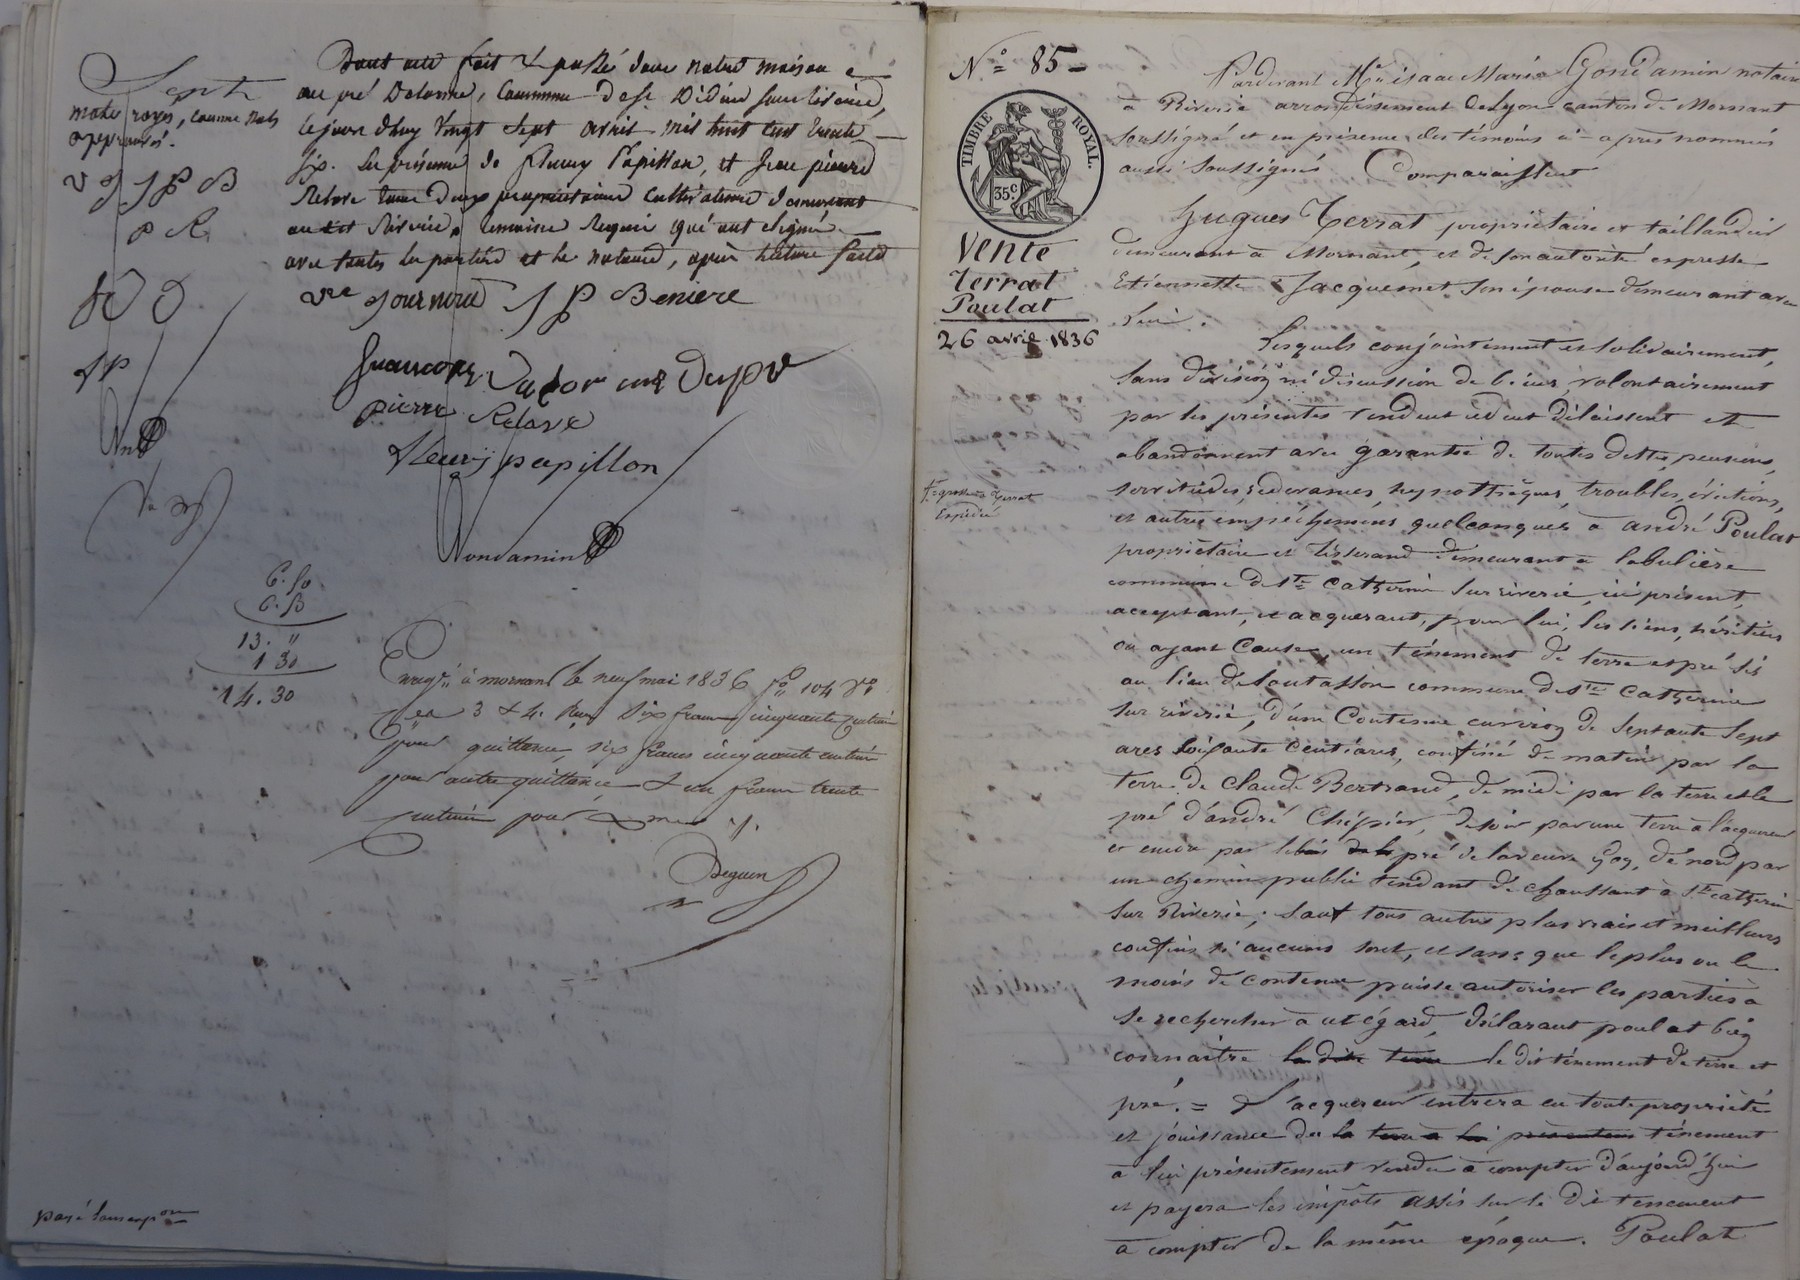 Sept
mots rayés, comme nuls
approuvés.
v J J P B
P R
Dont acte fait & passé dans notre maison
au pré Delorme, Commune de St Didier sous Riverie,
le jourd'huy vingt sept avril mil huit cent trente
six. En présence de fleury Papillon, et Jean pierre
Relave tous deux propriétaires cultivateurs demeurant
au dit Riverie, temoins Requis qui ont signé
avec toutes les parties et le notaire, après lecture faite
vve Journoud J P Beniere
pierre Relave
fleury papillon
Gondamin
6. 50
6. 50
13. "
1 30
14. 30
Enregé à mornant le neuf mai 1836 fo 104 vo
Cea 3 & 4. Reçu six francs cinquante centimes
pour quittance, six francs cinquante centimes
pour autre quittance & un franc trente
centimes pour
Deguen
N° = 85 -
TIMBRE ROYAL.
35c.
Vente
Terrat
Poulat
26 avril 1836
1re grosse à Terrat
Expédié
Pardevant Me isaac Marie Gondamin notaire
à Riverie arrondissement de Lyon canton de Mornant
soussigné et en présence des témoins ci-après nommés
aussi soussignés Comparaissent
Hugues Terrat propriétaire et taillandier
demeurant à Mornant, et de son autorité expresse
Etiennette Jacquemet son épouse demeurant avec
lui.
Lesquels conjointement et solidairement,
sans division ni discussion de biens volontairement
par les présentes vendent cèdent délaissent et
abandonnent avec garantie de toutes dettes, pensions,
servitudes, redevances, hypothèques, troubles, évictions,
et autres empêchemens quelconques à andré Poulat
propriétaire et tisserand demeurant à labulière
commune de Ste Catherine sur riverie, ici présent,
acceptant, et acquerant, pour lui, les siens, héritiers
ou ayant Cause, un ténement de terre et pré sis
au lieu de commune de Ste Catherine
sur riverie, d'une Contenue environ de septante sept
ares soixante centiares, confiné de matin par la
terre de Claude Bertrand, de midi par la terre et le
pré d'andré Chipier, de soir par une terre à l'acquereur
et encore par le pré de la veuve Goy, de nord par
un chemin public tendant de chaussant à Ste catherine
sur Riverie; sauf tous autres plus vrais et meilleurs
confins si aucuns sont, et sans que le plus ou le
moins de contenue puisse autoriser les parties à
se rechercher à cet égard, déclarant poulat bien
connaitre la dite terre le dit ténement de terre et
pré. = L'acquereur entrera en toute propriété
et jouissance du la terre à lui présentem ténement
à lui présentement vendu à compter d'aujourd'hui
et payera les impôts assis sur le dit tenement
à compter de la même époque. Poulat
payé